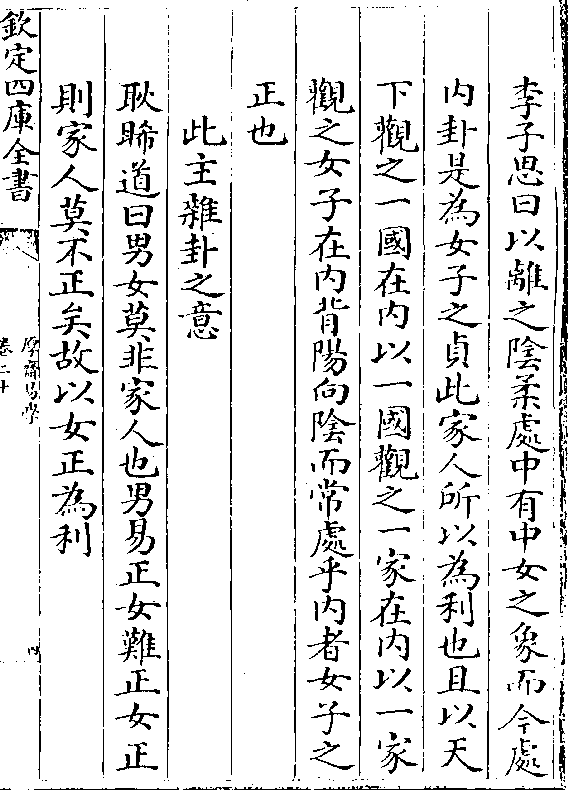 李子思曰以離之陰柔處中有中女之象而今處
内卦是為女子之貞此家人所以為利也且以天
下觀之一國在内以一國觀之一家在内以一家
觀之女子在内背陽向陰而常處乎内者女子之
正也
此主雜卦之意
耿睎道曰男女莫非家人也男易正女難正女正
則家人莫不正矣故以女正為利
欽定四庫全書
厚齋易學
卷二十
四